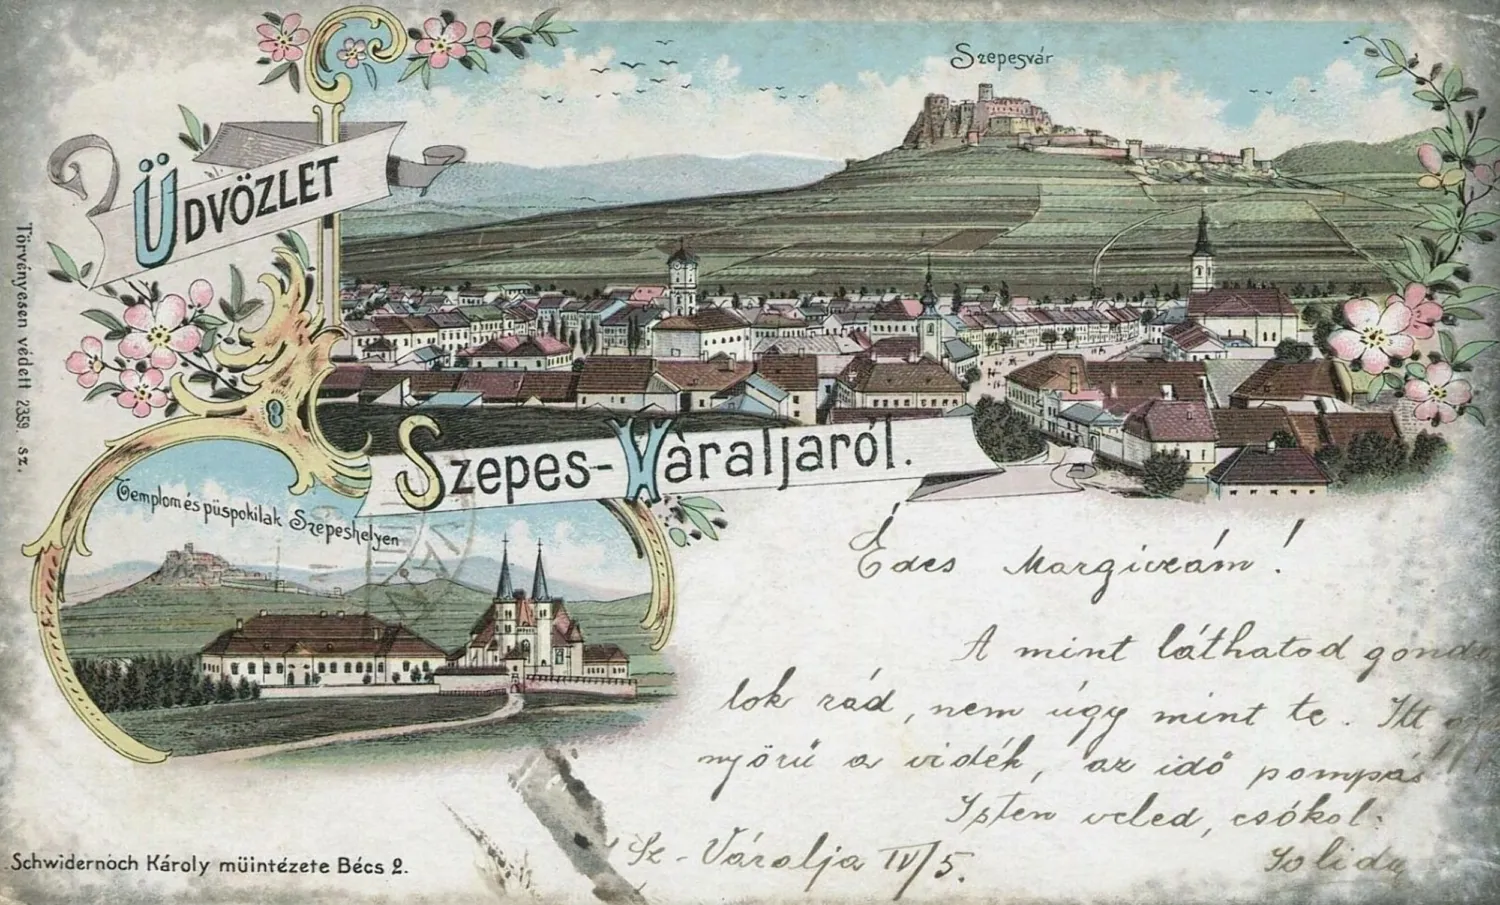 Szepesvár
ÜDVÖZLET
SZEPES-VÁRALJARÓL.
Templom és püspökilak Szepeshelyen
Törvényesen védett 2359. sz.
Édes Margiczám!
A mint láthatod gondo
lok rád, nem úgy mint te. Itt
nyörű a vidék, az idő pompás
Isten veled, csókol:
Sz-Váralja IV/5.
Schwidernoch Károly müintézete Bécs 2.